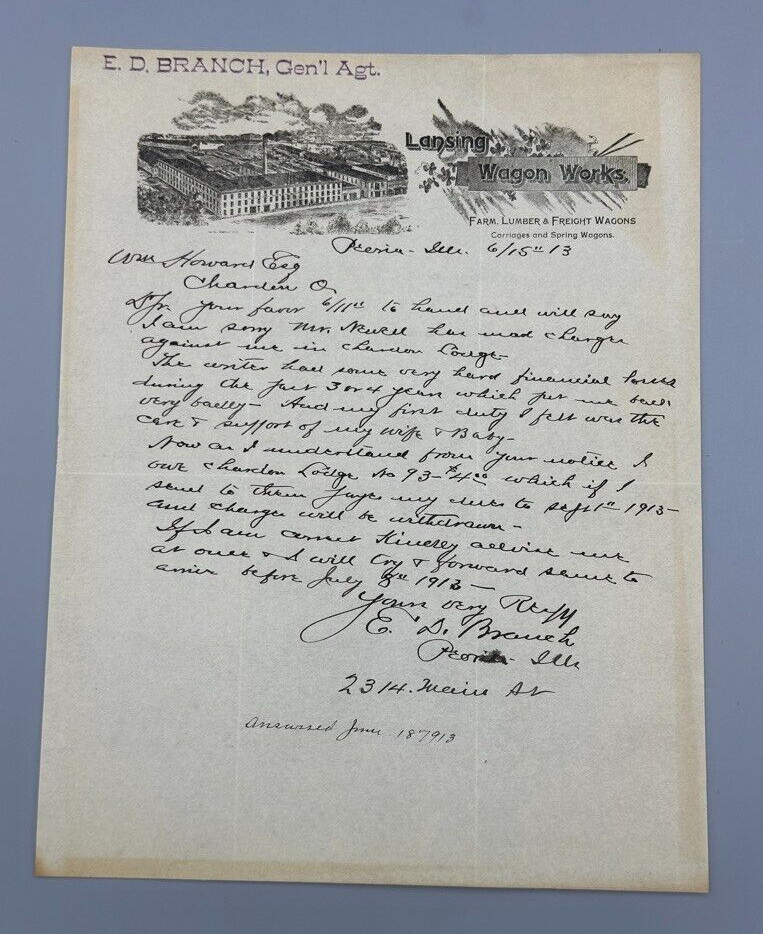 E. D. BRANCH, Gen'l Agt.
Lansing
Wagon Works.
FARM, LUMBER & FREIGHT WAGONS
Carriages and Spring Wagons.
Peoria - Ills. 6/15" 13
Wm Howard Esq
Chardon O.
D Sr. your favor 6/11th to hand and will say
I am sorry Mr. Newell has mad charges
against me in Chardon Lodge -
The writer had some very hard financial losses
during the past 3 or 4 years which put me back
very badly - And my first duty I felt was the
care & support of my wife & Baby -
Now as I understand from your notice I
owe Chardon Lodge No 93 - $4.00 which if I
send to them pays my dues to Sept 1st 1913 -
and charges will be withdrawn -
If I am correct Kindly advise me
at once & I will try & forward same to
arrive before July 1913 -
Yours very Resp
E. D. Branch
Peoria - Ills
2314. Main St
Answered June 18 1913